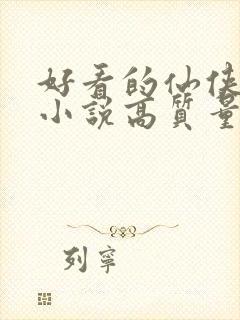 好看的仙侠
小說高質量
列寧